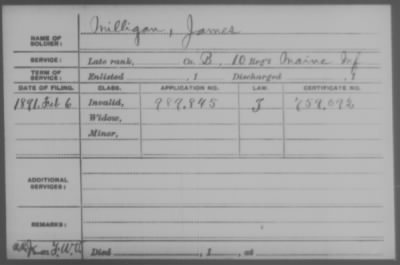 NAME OF SOLDIER: Milligan, James
SERVICE: Late rank, Co. B, 10 Reg't Maine Inf
TERM OF SERVICE: Enlisted , 1 Discharged , 1
DATE OF FILING. CLASS. APPLICATION NO. LAW. CERTIFICATE NO.
1891, Feb 6 Invalid, 989.845 J 759.092
Widow,
Minor,
ADDITIONAL SERVICES:
REMARKS:
Died , 1 , at